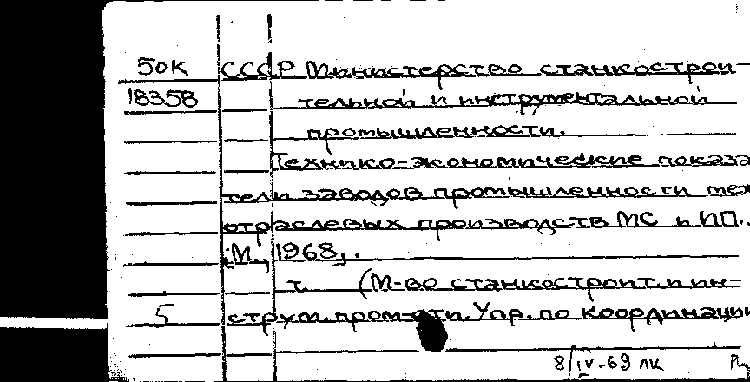 50К СССР Министерство станкострои-
18358 тельной и инструментальной
промышленности.
Технико-экономические показа
тели заводов промышленности меж
отраслевых производств МС и ИП..
М., 1968,.
т. (М-во станкостроит. и ин-
5 струм. пром-сти. Упр. по координации
8/IV-69 лк